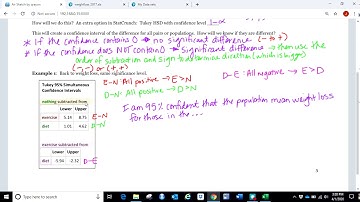 How will we do this? An extra option in StatCrunch: Tukey HSD with confidence level 1-α
This will create a confidence interval of the difference for all pairs or populations. How will we know if they are different?
* If the confidence contains 0 → no significant difference (- to +)
* If the confidence does NOT contain 0 → Significant difference → then use the
order of subtraction and sign to determine direction (which is bigger)
(-,-) or (+,+)
Example 1: Back to weight loss, same significance level.
E-N: All positive → E>N
D-E: All negative → E>D
D-N: All positive → D>N
Tukey 95% Simultaneous
Confidence Intervals
nothing subtracted from
Lower Upper
exercise 5.14 8.75 E-N
diet 1.01 4.62 D-N
exercise subtracted from
Lower Upper
diet -5.94 -2.32 D-E
I am 95% confident that the population mean weight loss
for those in the ...
5